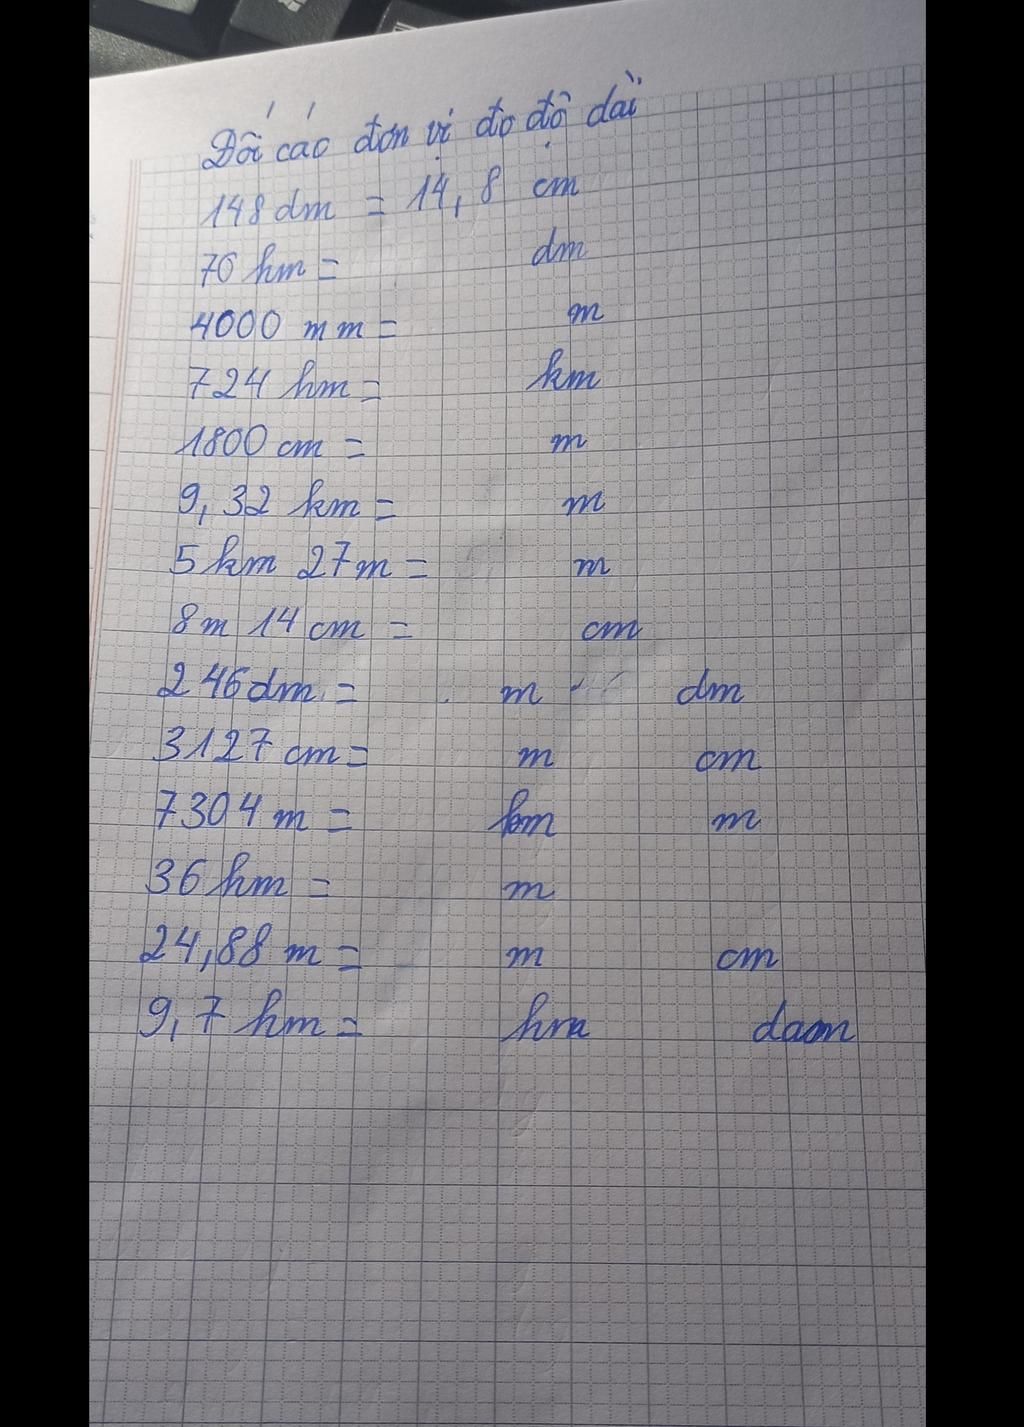 Đổi các đơn vị đo độ dài
148 dm = 14,8 cm
76 hm = dm
4000 mm = m
724 hm = km
1800 cm = m
9,32 km = m
5 km 27 m = m
8 m 14 cm = cm
246 dm = m dm
3127 cm = m cm
7304 m = km m
36 hm = m
24,88 m = m cm
9,7 hm = hm dam